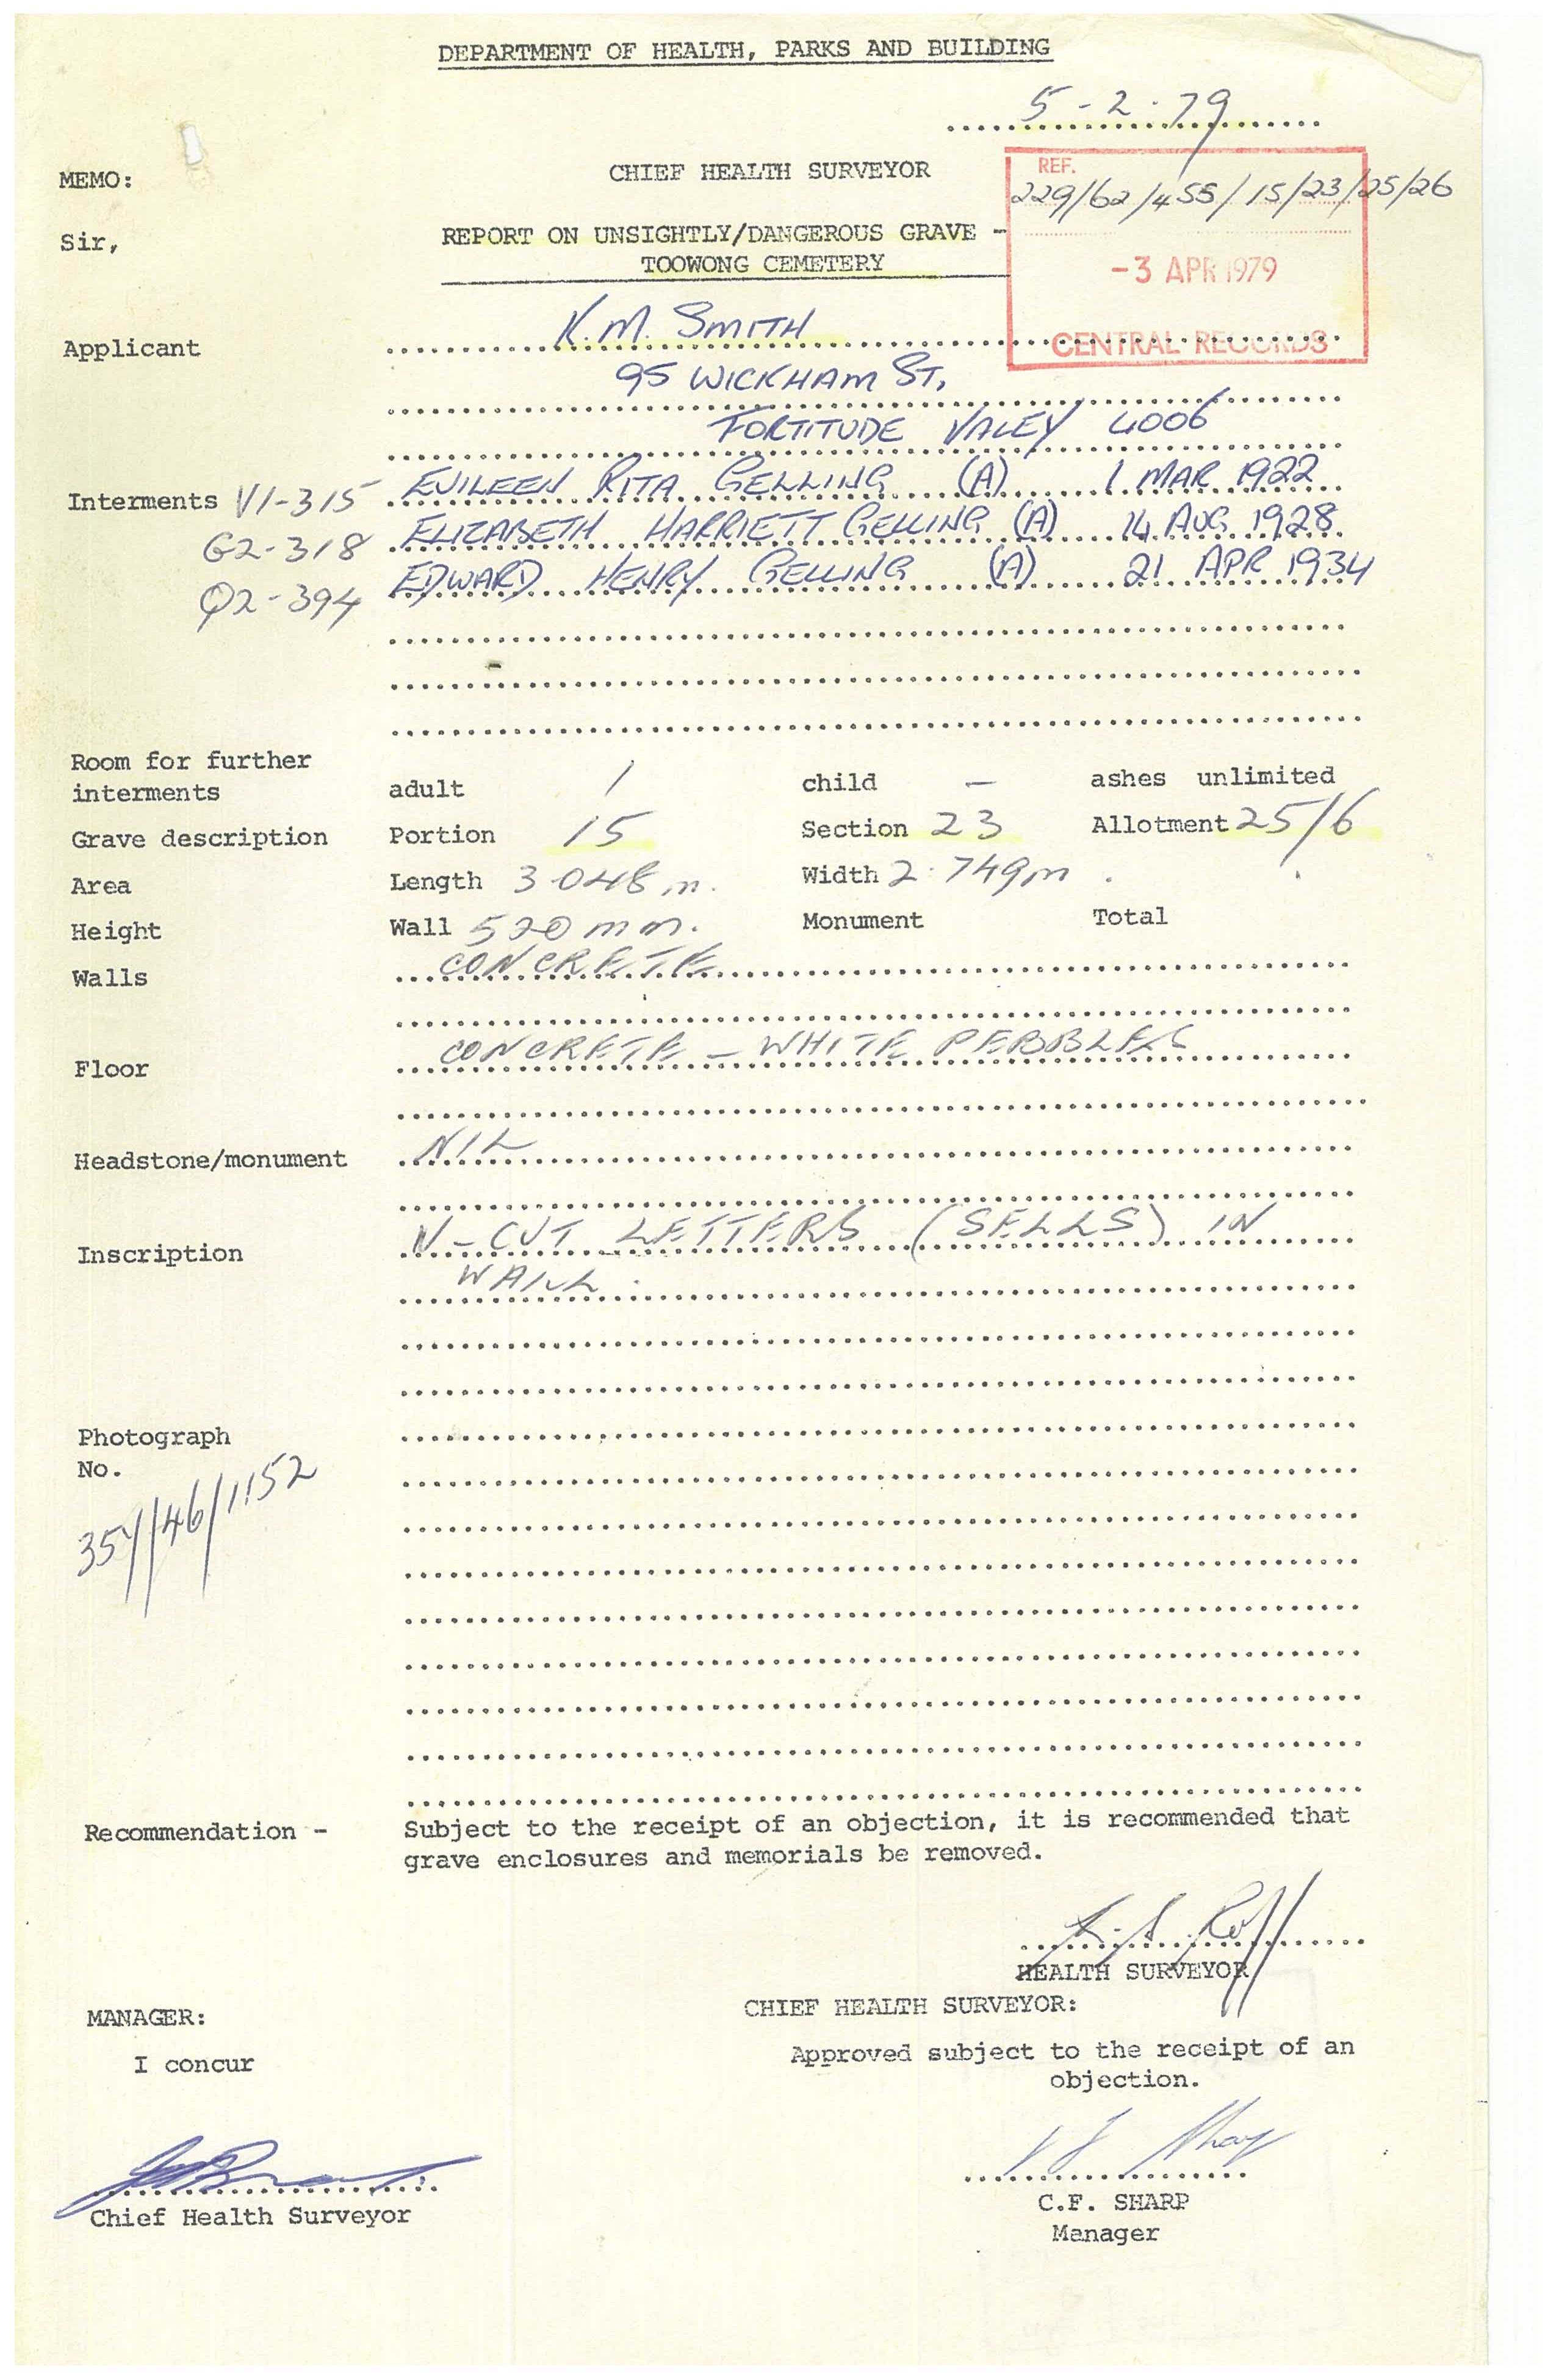 DEPARTMENT OF HEALTH, PARKS AND BUILDING
5-2-79
MEMO:
CHIEF HEALTH SURVEYOR
REF.
229/62/455/15/23/25/26
Sir,
REPORT ON UNSIGHTLY/DANGEROUS GRAVE -
TOOWONG CEMETERY
-3 APR 1979
CENTRAL RECORDS
Applicant K.M. SMITH
95 WICKHAM ST,
FORTITUDE VALEY 4006
Interments V1-315 EVILEEN RITA GELLING (A) 1 MAR 1922
G2-318 ELIZABETH HARRIETT GELLING (A) 14 AUG 1928
Q2-394 EDWARD HENRY GELLING (A) 21 APR 1934
Room for further
interments adult 1 child - ashes unlimited
Grave description Portion 15 Section 23 Allotment 25/6
Area Length 3.048 m. Width 2.749m
Height Wall 520 mm. Monument Total
Walls CONCRETE
Floor CONCRETE - WHITE PEBBLES
Headstone/monument NIL
Inscription V-CUT LETTERS (SELLS) IN
WALL.
Photograph
No.
357/46/1152
Recommendation - Subject to the receipt of an objection, it is recommended that
grave enclosures and memorials be removed.
HEALTH SURVEYOR
MANAGER:
CHIEF HEALTH SURVEYOR:
I concur
Approved subject to the receipt of an
objection.
Chief Health Surveyor
C.F. SHARP
Manager